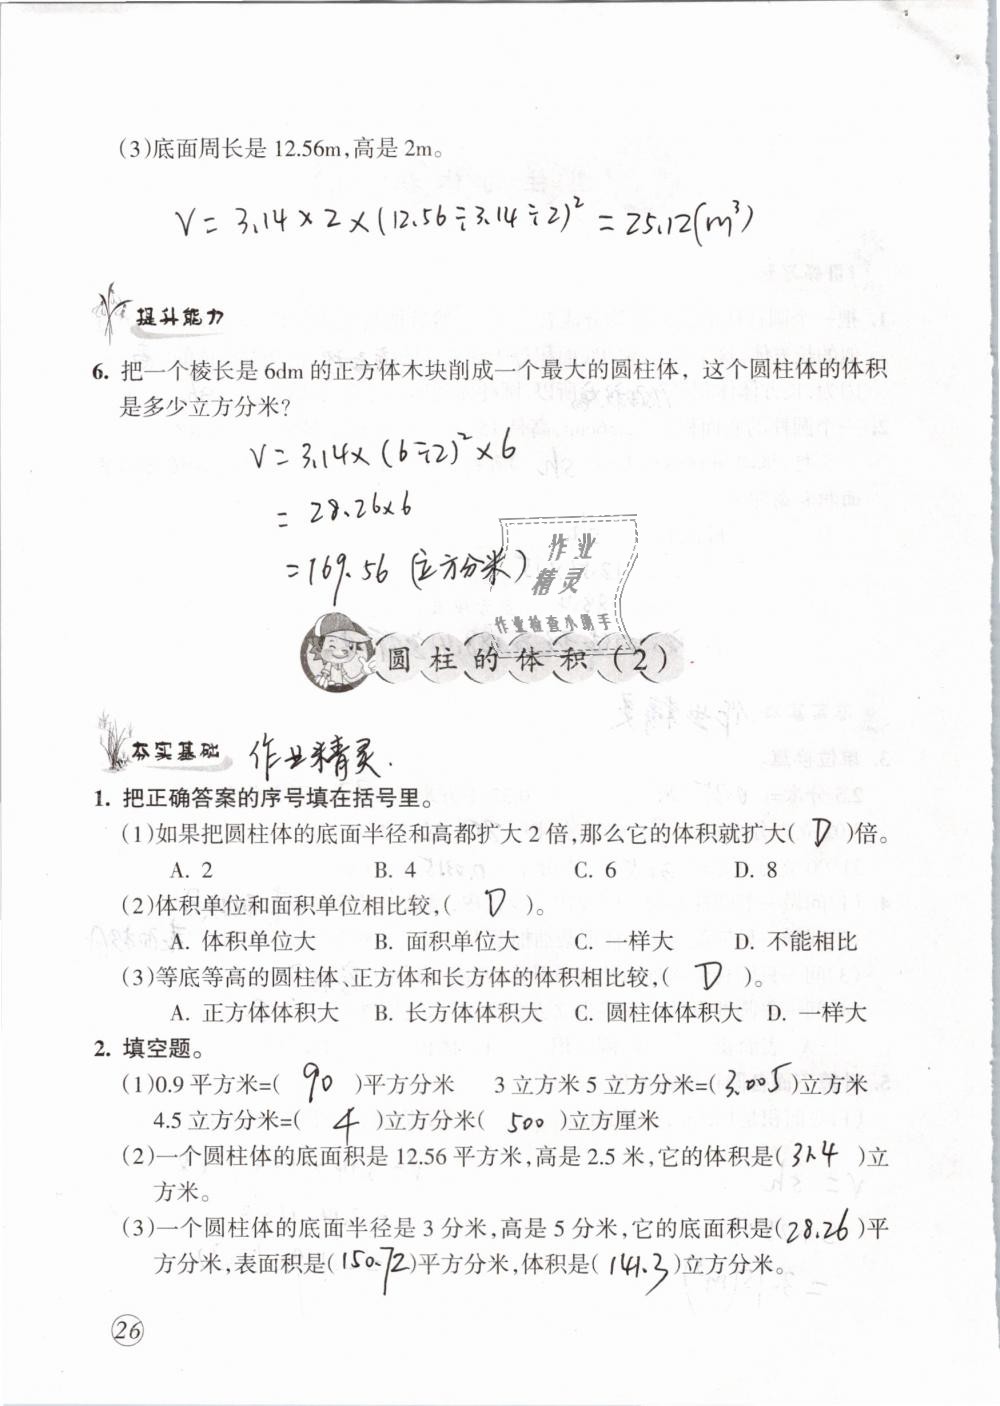 (3)底面周长是12.56m,高是2m。
V=3.14×2×(12.56÷3.14÷2)²=25.12(m³)
提升能力
6. 把一个棱长是6dm的正方体木块削成一个最大的圆柱体，这个圆柱体的体积
是多少立方分米?
V=3.14×(6÷2)²×6
=28.26×6
=169.56(立方分米)
作业
精灵
作业检查小助手
圆柱的体积(2)
夯实基础 作业精灵.
1. 把正确答案的序号填在括号里。
(1)如果把圆柱体的底面半径和高都扩大2倍,那么它的体积就扩大( D )倍。
A. 2 B. 4 C. 6 D. 8
(2)体积单位和面积单位相比较,( D )。
A. 体积单位大 B. 面积单位大 C. 一样大 D. 不能相比
(3)等底等高的圆柱体、正方体和长方体的体积相比较,( D )。
A. 正方体体积大 B. 长方体体积大 C. 圆柱体体积大 D. 一样大
2. 填空题。
(1)0.9平方米=( 90 )平方分米 3立方米5立方分米=( 3.005 )立方米
4.5立方分米=( 4 )立方分米( 500 )立方厘米
(2)一个圆柱体的底面积是12.56平方米,高是2.5米,它的体积是( 31.4 )立
方米。
(3)一个圆柱体的底面半径是3分米,高是5分米,它的底面积是( 28.26 )平
方分米,表面积是( 150.72 )平方分米,体积是( 141.3 )立方分米。
26